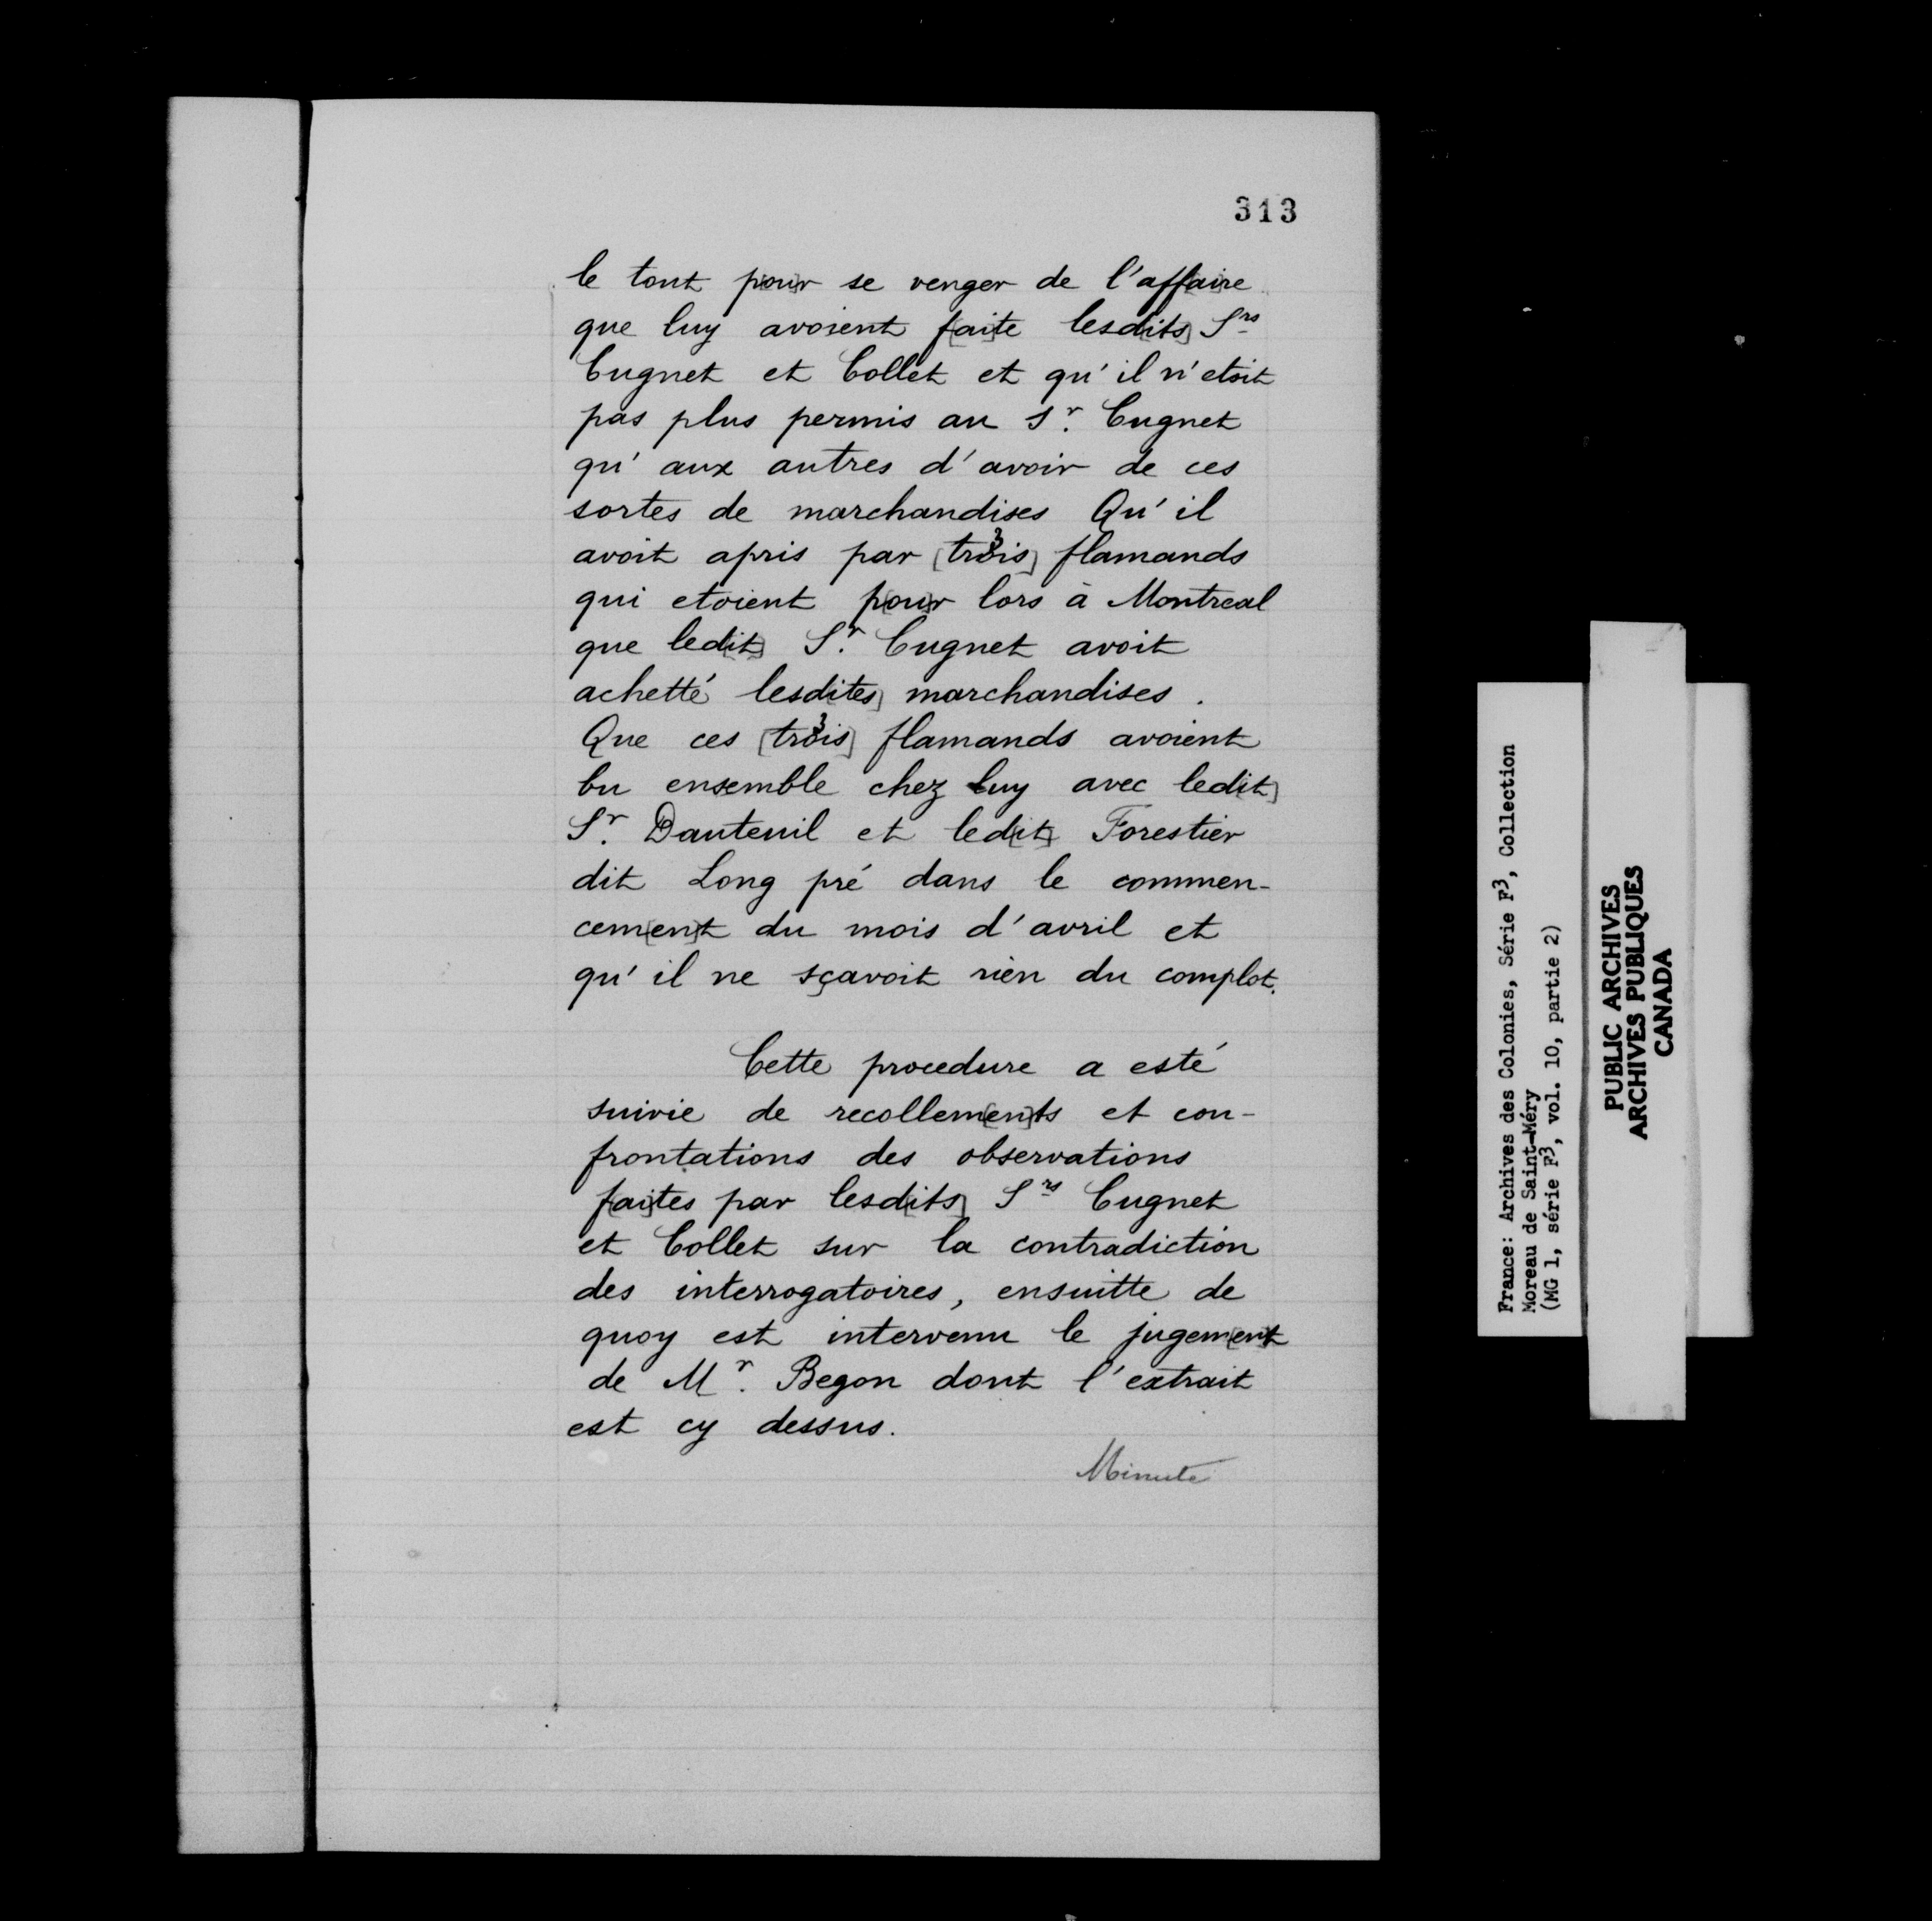 313
le tout p[ou]r se venger de l'affaire
que luy avoient f[ai]te lesd[its] Srs
Cugnet et Collet et qu'il n'etoit
pas plus permis au Sr. Cugnet
qu'aux autres d'avoir de ces
sortes de marchandises Qu'il
avoit apris par [trois] 3 flamands
qui etoient p[ou]r lors à Montreal
que led[it] Sr. Cugnet avoit
achetté lesd[ites] marchandises.
Que ces [trois] 3 flamands avoient
bu ensemble chez luy avec led[it]
Sr. Dauteuil et led[it] Forestier
dit Long pré dans le commen-
cem[en]t du mois d'avril et
qu'il ne sçavoit rien du complot.
Cette procedure a esté
suivie de recollem[en]ts et con-
frontations des observations
f[ai]tes par lesd[its] Srs Cugnet
et Collet sur la contradiction
des interrogatoires, ensuitte de
quoy est intervenu le jugem[en]t
de Mr. Begon dont l'extrait
est cy dessus.
Minute
France: Archives des Colonies, Série F3, Collection
Moreau de Saint-Méry
(MG 1, série F3, vol. 10, partie 2)
PUBLIC ARCHIVES
ARCHIVES PUBLIQUES
CANADA